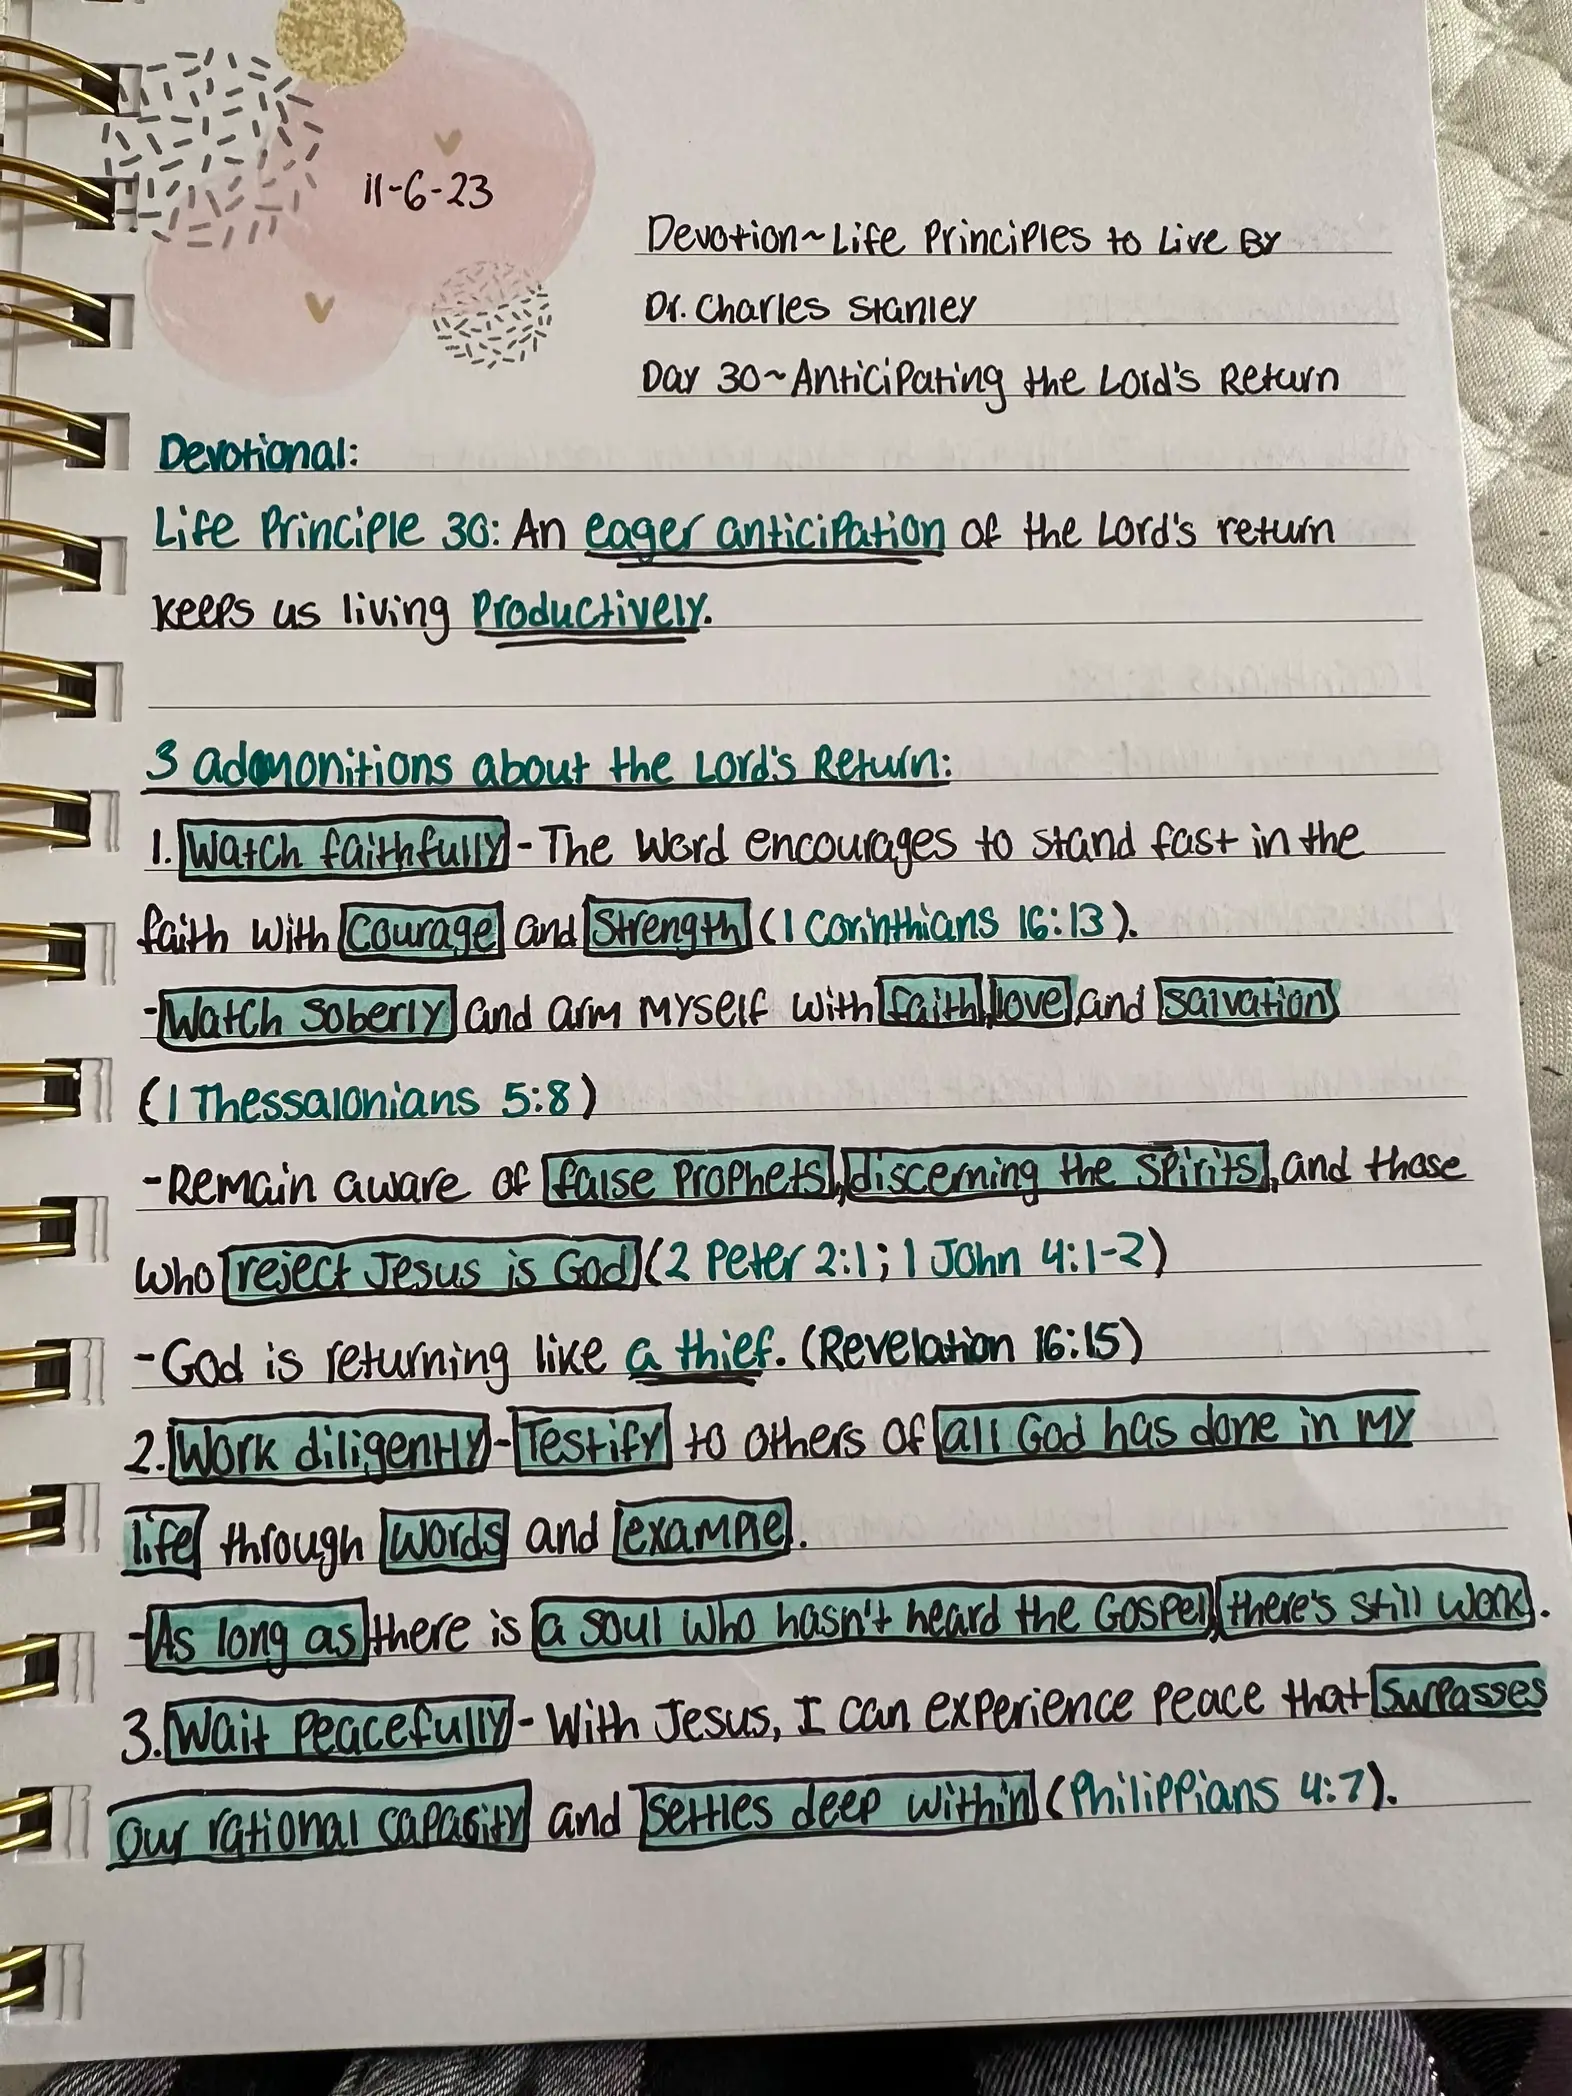 11-6-23
Devotion~Life Principles to Live By
Dr. Charles Stanley
Day 30~Anticipating the Lord's Return
Devotional:
Life Principle 30: An eager anticipation of the Lord's return
keeps us living productively.
3 admonitions about the Lord's Return:
1. Watch faithfully - The Word encourages to stand fast in the
faith with courage and strength (1 Corinthians 16:13).
-Watch soberly and arm myself with faith, love, and salvation
(1 Thessalonians 5:8)
-Remain aware of false prophets, discerning the spirits, and those
who reject Jesus is God (2 Peter 2:1; 1 John 4:1-2)
-God is returning like a thief. (Revelation 16:15)
2. Work diligently - Testify to others of all God has done in my
life through words and example.
-As long as there is a soul who hasn't heard the Gospel, there's still work.
3. Wait peacefully - With Jesus, I can experience peace that surpasses
our rational capacity and settles deep within (Philippians 4:7).